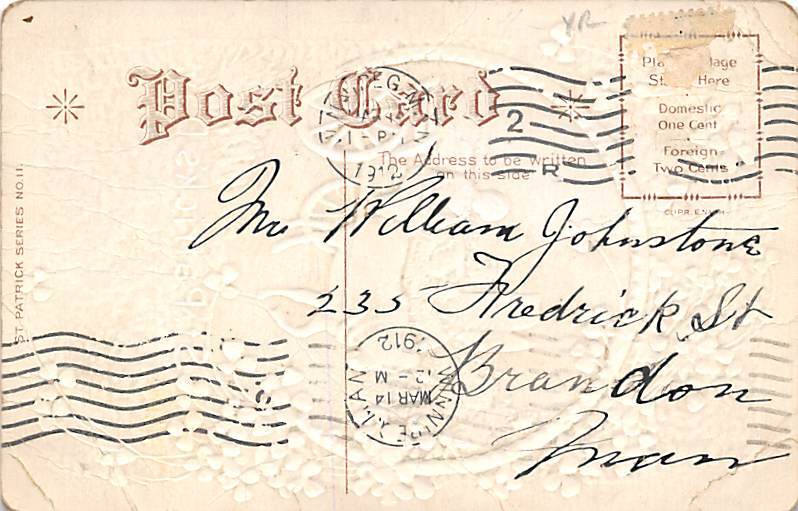 XR
Post Card
Place Postage
Stamp Here
Domestic
One Cent
Foreign
Two Cents
2
R
1912
The Address to be written
on this side
ST. PATRICK SERIES NO. 11.
Mr William Johnstone
235 Fredrick St
Brandon
Man
WINNIPEG, MAN
MAR 14
2 - M
1912